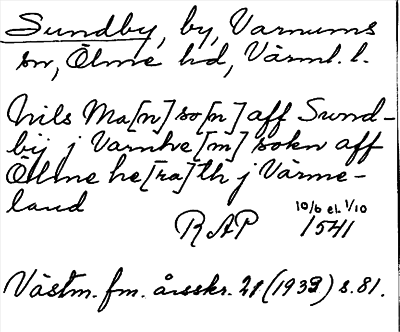 Sundby, by, Varnums
sn, Ölme hd, Värml. l.
Nils Ma[n]so[n] aff Sund-
bij j Varnhe[m] sokn aff
Ölme he[ra]th j Värme-
land
RAP 10/6 el. 1/10 1541
Västm. fm. årsskr. 21 (1933) s. 81.